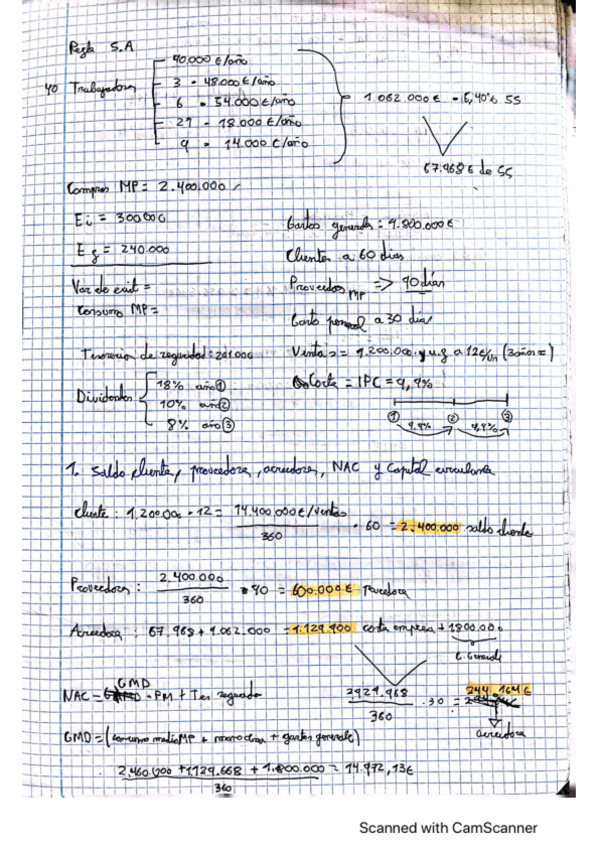 Regla S.A
40 Trabajadores
40.000 €/año
3 - 48.000 €/año
6 - 54.000 €/año
21 - 18.000 €/año
9 - 14.000 €/año
1.062.000 € - 6,40% SS
67.968 € de SS
Compras MP = 2.400.000
Ei = 300000
Eg = 240.000
Var de exist =
Consumo MP =
Gastos generales : 4.800.000 €
Clientes a 60 días
Proveedores MP => 90 días
Gasto personal a 30 días
Tesorería de seguridad : 201.000
Ventas = 1.200.000 y u.g a 12€/un (3años =)
Dividendos
18% año ①
10% año ②
8% año ③
Coste = IPC = 4,4%
① ② ③
4,4% 4,4%
1. Saldo cliente, proveedores, acreedores, NAC y Capital circulante
Cliente : 1.200.000 · 12 = 14.400.000 €/ventas
360
· 60 = 2.400.000 saldo cliente
Proveedores : 2.400.000
360
· 90 = 600.000 € Proveedores
Acreedores : 67.968 + 1.062.000 = 1.129.900 coste empresa + 1800.000
G. Generales
NAC = GMD · PM + Tes seguridad
2929.968
360
· 30 = 244.164 €
acreedores
GMD = (consumo medio MP + mano obra + gastos generales)
2.460.000 + 1.129.668 + 1.800.000 = 14.972,13€
360
Scanned with CamScanner